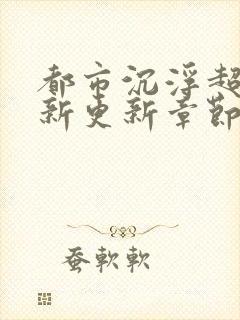 都市沉浮超
新更新章節
蚕軟軟